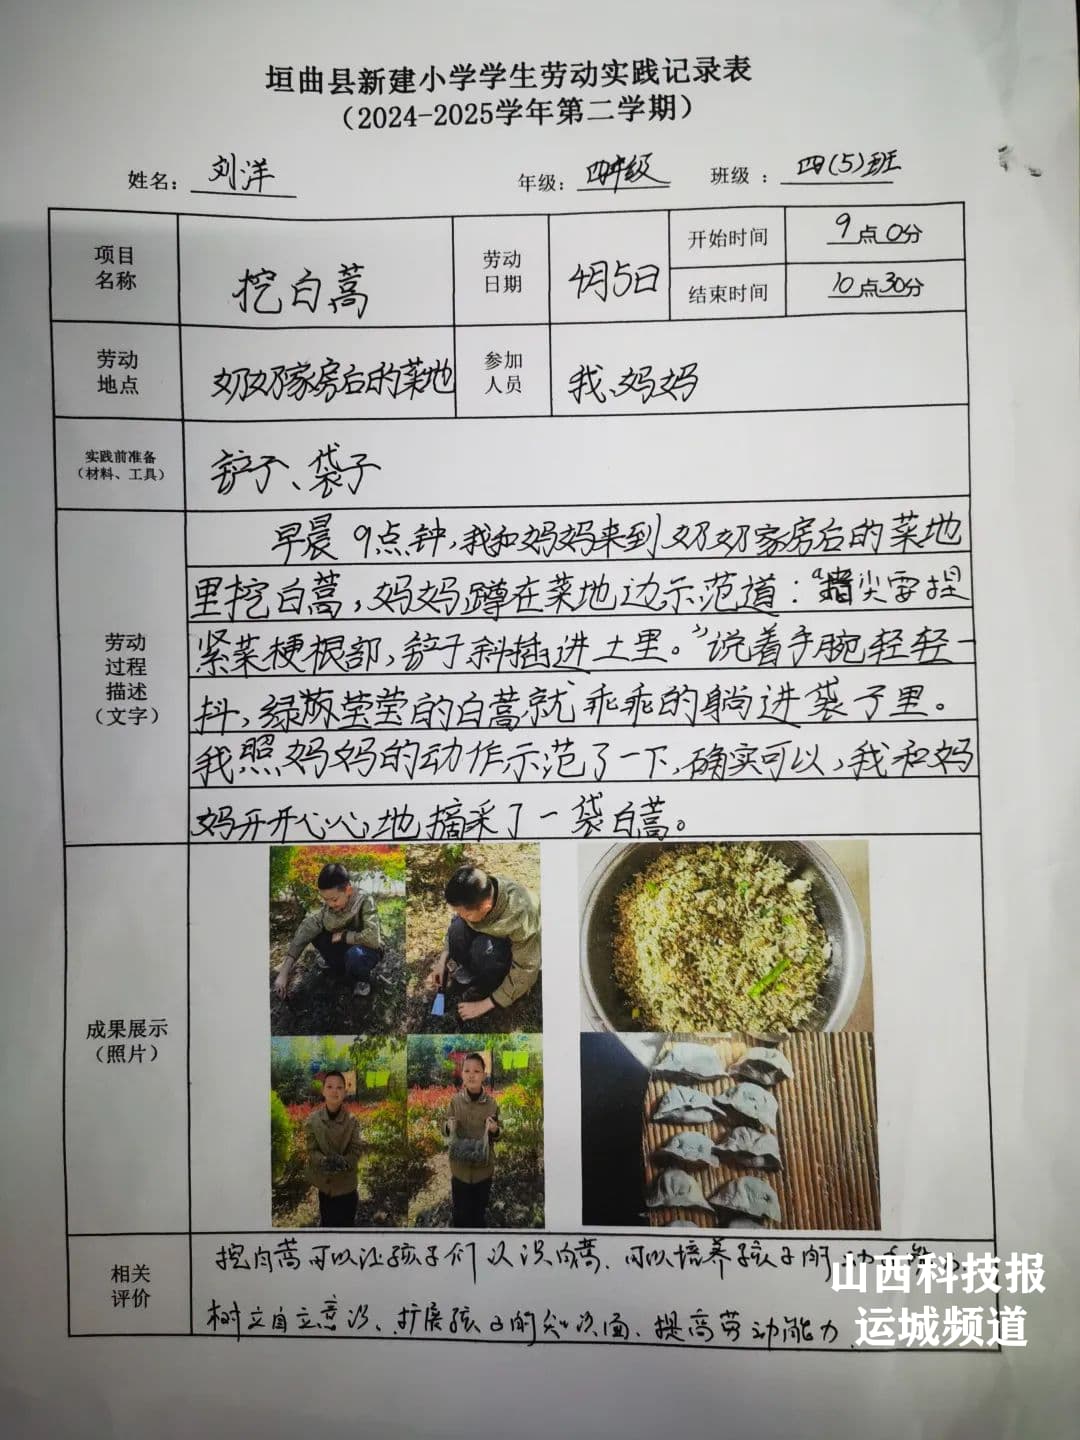 垣曲县新建小学学生劳动实践记录表
（2024-2025学年第二学期）
姓名： 刘洋 年级： 四年级 班级 ： 四(5)班
项目名称 挖白蒿 劳动日期 4月5日 开始时间 9点0分
结束时间 10点30分
劳动地点 奶奶家房后的菜地 参加人员 我、妈妈
实践前准备（材料、工具） 铲子、袋子
劳动过程描述（文字）
早晨9点钟，我和妈妈来到奶奶家房后的菜地
里挖白蒿，妈妈蹲在菜地边示范道：“指尖要捏
紧菜梗根部，铲子斜插进土里。”说着手腕轻轻一
抖，绿莹莹的白蒿就乖乖的躺进袋子里。
我照妈妈的动作示范了一下，确实可以，我和妈
妈开开心心地摘采了一袋白蒿。
成果展示（照片）
相关评价
挖白蒿可以让孩子们认识白蒿、可以培养孩子的动手
树立自立意识、扩展孩子的知识面、提高劳动能力
山西科技报
运城频道